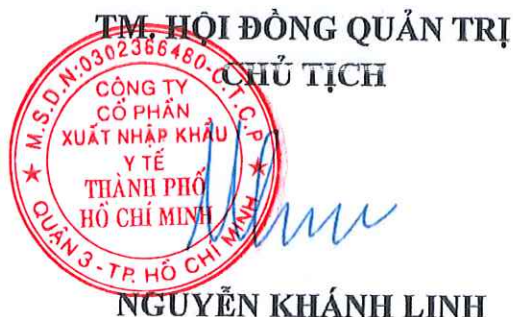 TM. HỘI ĐỒNG QUẢN TRỊ
CHỦ TỊCH
M.S.D.N:0302366480-C.T.C.P
CÔNG TY
CỔ PHẦN
XUẤT NHẬP KHẨU
Y TẾ
THÀNH PHỐ
HỒ CHÍ MINH
QUẬN 3 - TP. HỒ CHÍ MINH
NGUYỄN KHÁNH LINH